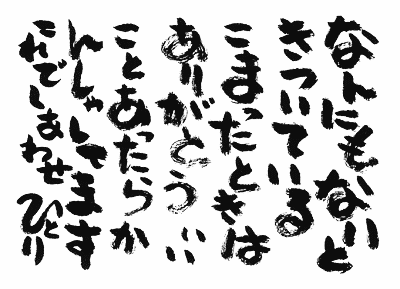 なんにもないと
きついている
こまったときは
ありがとういい
ことあったらか
んしゃしてます
これでしあわせひとり